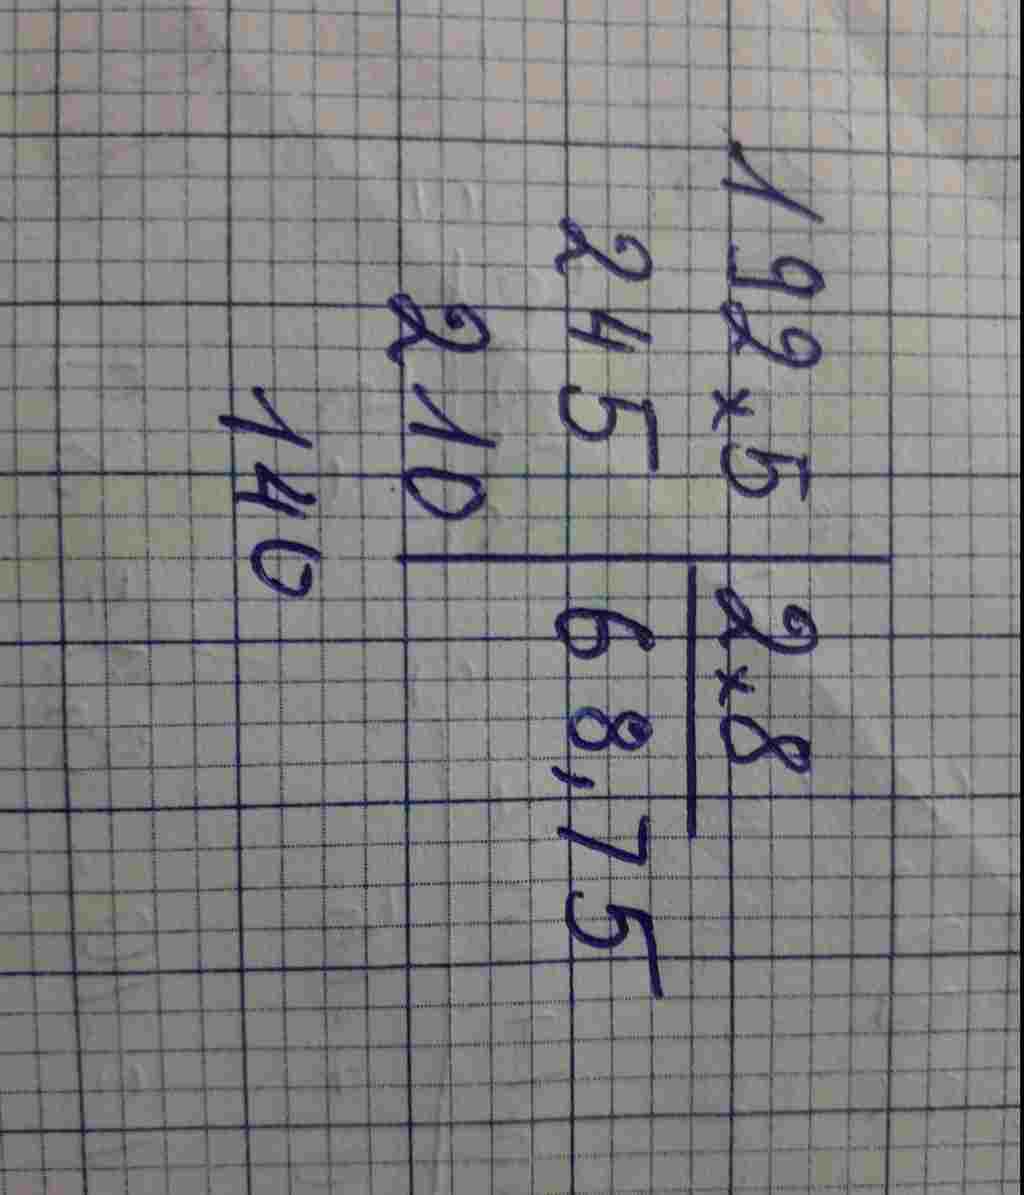 192x5 2x8
245 68,75
210
140